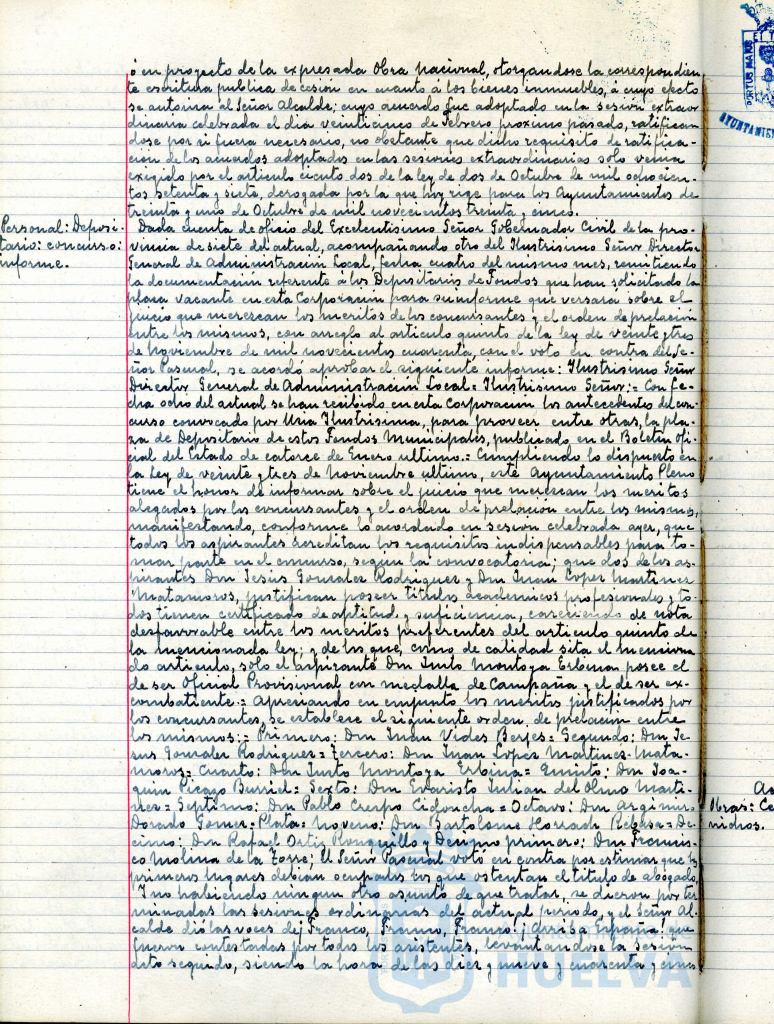 ó en proyecto de la expresada Obra Nacional, otorgandose la correspondien-
te escritura publica de cesión en cuanto á los bienes inmuebles, á cuyo efecto
se autoriza al Señor Alcalde; cuyo acuerdo fue adoptado en la sesión extraor
dinaria celebrada el dia veinticinco de Febrero proximo pasado, ratifican
dose por si fuera necesario, no obstante que dicho requisito de ratifica-
ción de los acuerdos adoptados en las sesiones extraordinarias solo venia
exigido por el articulo ciento dos de la ley de dos de Octubre de mil ochocien-
tos setenta y siete, derogada por la que hoy rige para los Ayuntamientos de
treinta y uno de Octubre de mil novecientos treinta y cinco.
Personal: Deposi-
tario: concurso:
informe.
Dada cuenta de oficio del Excelentisimo Señor Gobernador Civil de la pro-
vincia de siete del actual, acompañando otro del Ilustrisimo Señor Director
General de Administración Local, fecha cuatro del mismo mes, remitiendo
la documentación referente á los Depositarios de Fondos que han solicitado la
plaza vacante en esta Corporación para su informe que versará sobre el
juicio que merezcan los meritos de los concursantes y el orden de prelación
entre los mismos, con arreglo al articulo quinto de la ley de veinte y tres
de Noviembre de mil novecientos cuarenta, con el voto en contra del Se-
ñor Pascual, se acordó aprobar el siguiente informe: Ilustrisimo Señor
Director General de Administración Local = Ilustrisimo Señor: = Con fe-
cha ocho del actual se han recibido en esta Corporación los antecedentes del con
curso convocado por Usia Ilustrisima, para proveer entre otras, la pla-
za de Depositario de estos Fondos Municipales, publicado en el Boletin Ofi-
cial del Estado de catorce de Enero ultimo. = Cumpliendo lo dispuesto en
la Ley de veinte y tres de Noviembre ultimo, este Ayuntamiento Pleno
tiene el honor de informar sobre el juicio que merezcan los meritos
alegados por los concursantes y el orden de prelacion entre los mismos,
manifestando, conforme lo acordado en sesión celebrada ayer, que
todos los aspirantes acreditan los requisitos indispensables para to-
mar parte en el concurso, según la convocatoria; que dos de los as-
pirantes Don Jesús Gonzalez Rodriguez y Don Juan Lopez Martinez
Matamoros, justifican poseer titulos academicos profesionales y to-
dos tienen certificado de aptitud y suficiencia, careciendo de nota
desfavorable entre los meritos preferentes del articulo quinto de
la mencionada ley; y de los que, como de calidad sita el menciona
do articulo, sólo el aspirante Don Justo Montoya Erbina posee el
de ser Oficial Provisional con medalla de Campaña y el de ser ex-
combatiente. = Apreciando en conjunto los meritos justificados por
los concursantes, se establece el siguiente orden de prelacion entre
los mismos: = Primero: Don Juan Vides Berjes = Segundo: Don Je-
sus Gonzalez Rodriguez = Tercero: Don Juan Lopez Martinez-Mata-
moros = Cuarto: Don Justo Montoya Erbina = Quinto: Don Joa-
quin Picazo Burriel = Sexto: Don Evaristo Julian del Olmo Marti-
nez = Septimo: Don Pablo Crespo Cidoncha = Octavo: Don Argimiro
Dorado Gomez-Plata = Noveno: Don Bartolome Horrach Rebasa = De-
cimo: Don Rafael Ortiz Ronquillo y Decimo primero: Don Francis-
co Molina de la Torre; el Señor Pascual votó en contra por estimar que los
primeros lugares debian ocuparlos los que ostentan el titulo de abogado.
Y no habiendo ningun otro asunto de que tratar, se dieron por ter
minadas las sesiones ordinarias del actual periodo, y el Señor Al-
calde dió las voces de ¡Franco, Franco, Franco! ¡Arriba España! que
fueron contestadas por todos los asistentes, levantandose la sesión
acto seguido, siendo la hora de las diez y nueve y cuarenta y cinco
Obras: Ce
nidros.
PORTUS MARIS
AYUNTAMIEN
HUELVA